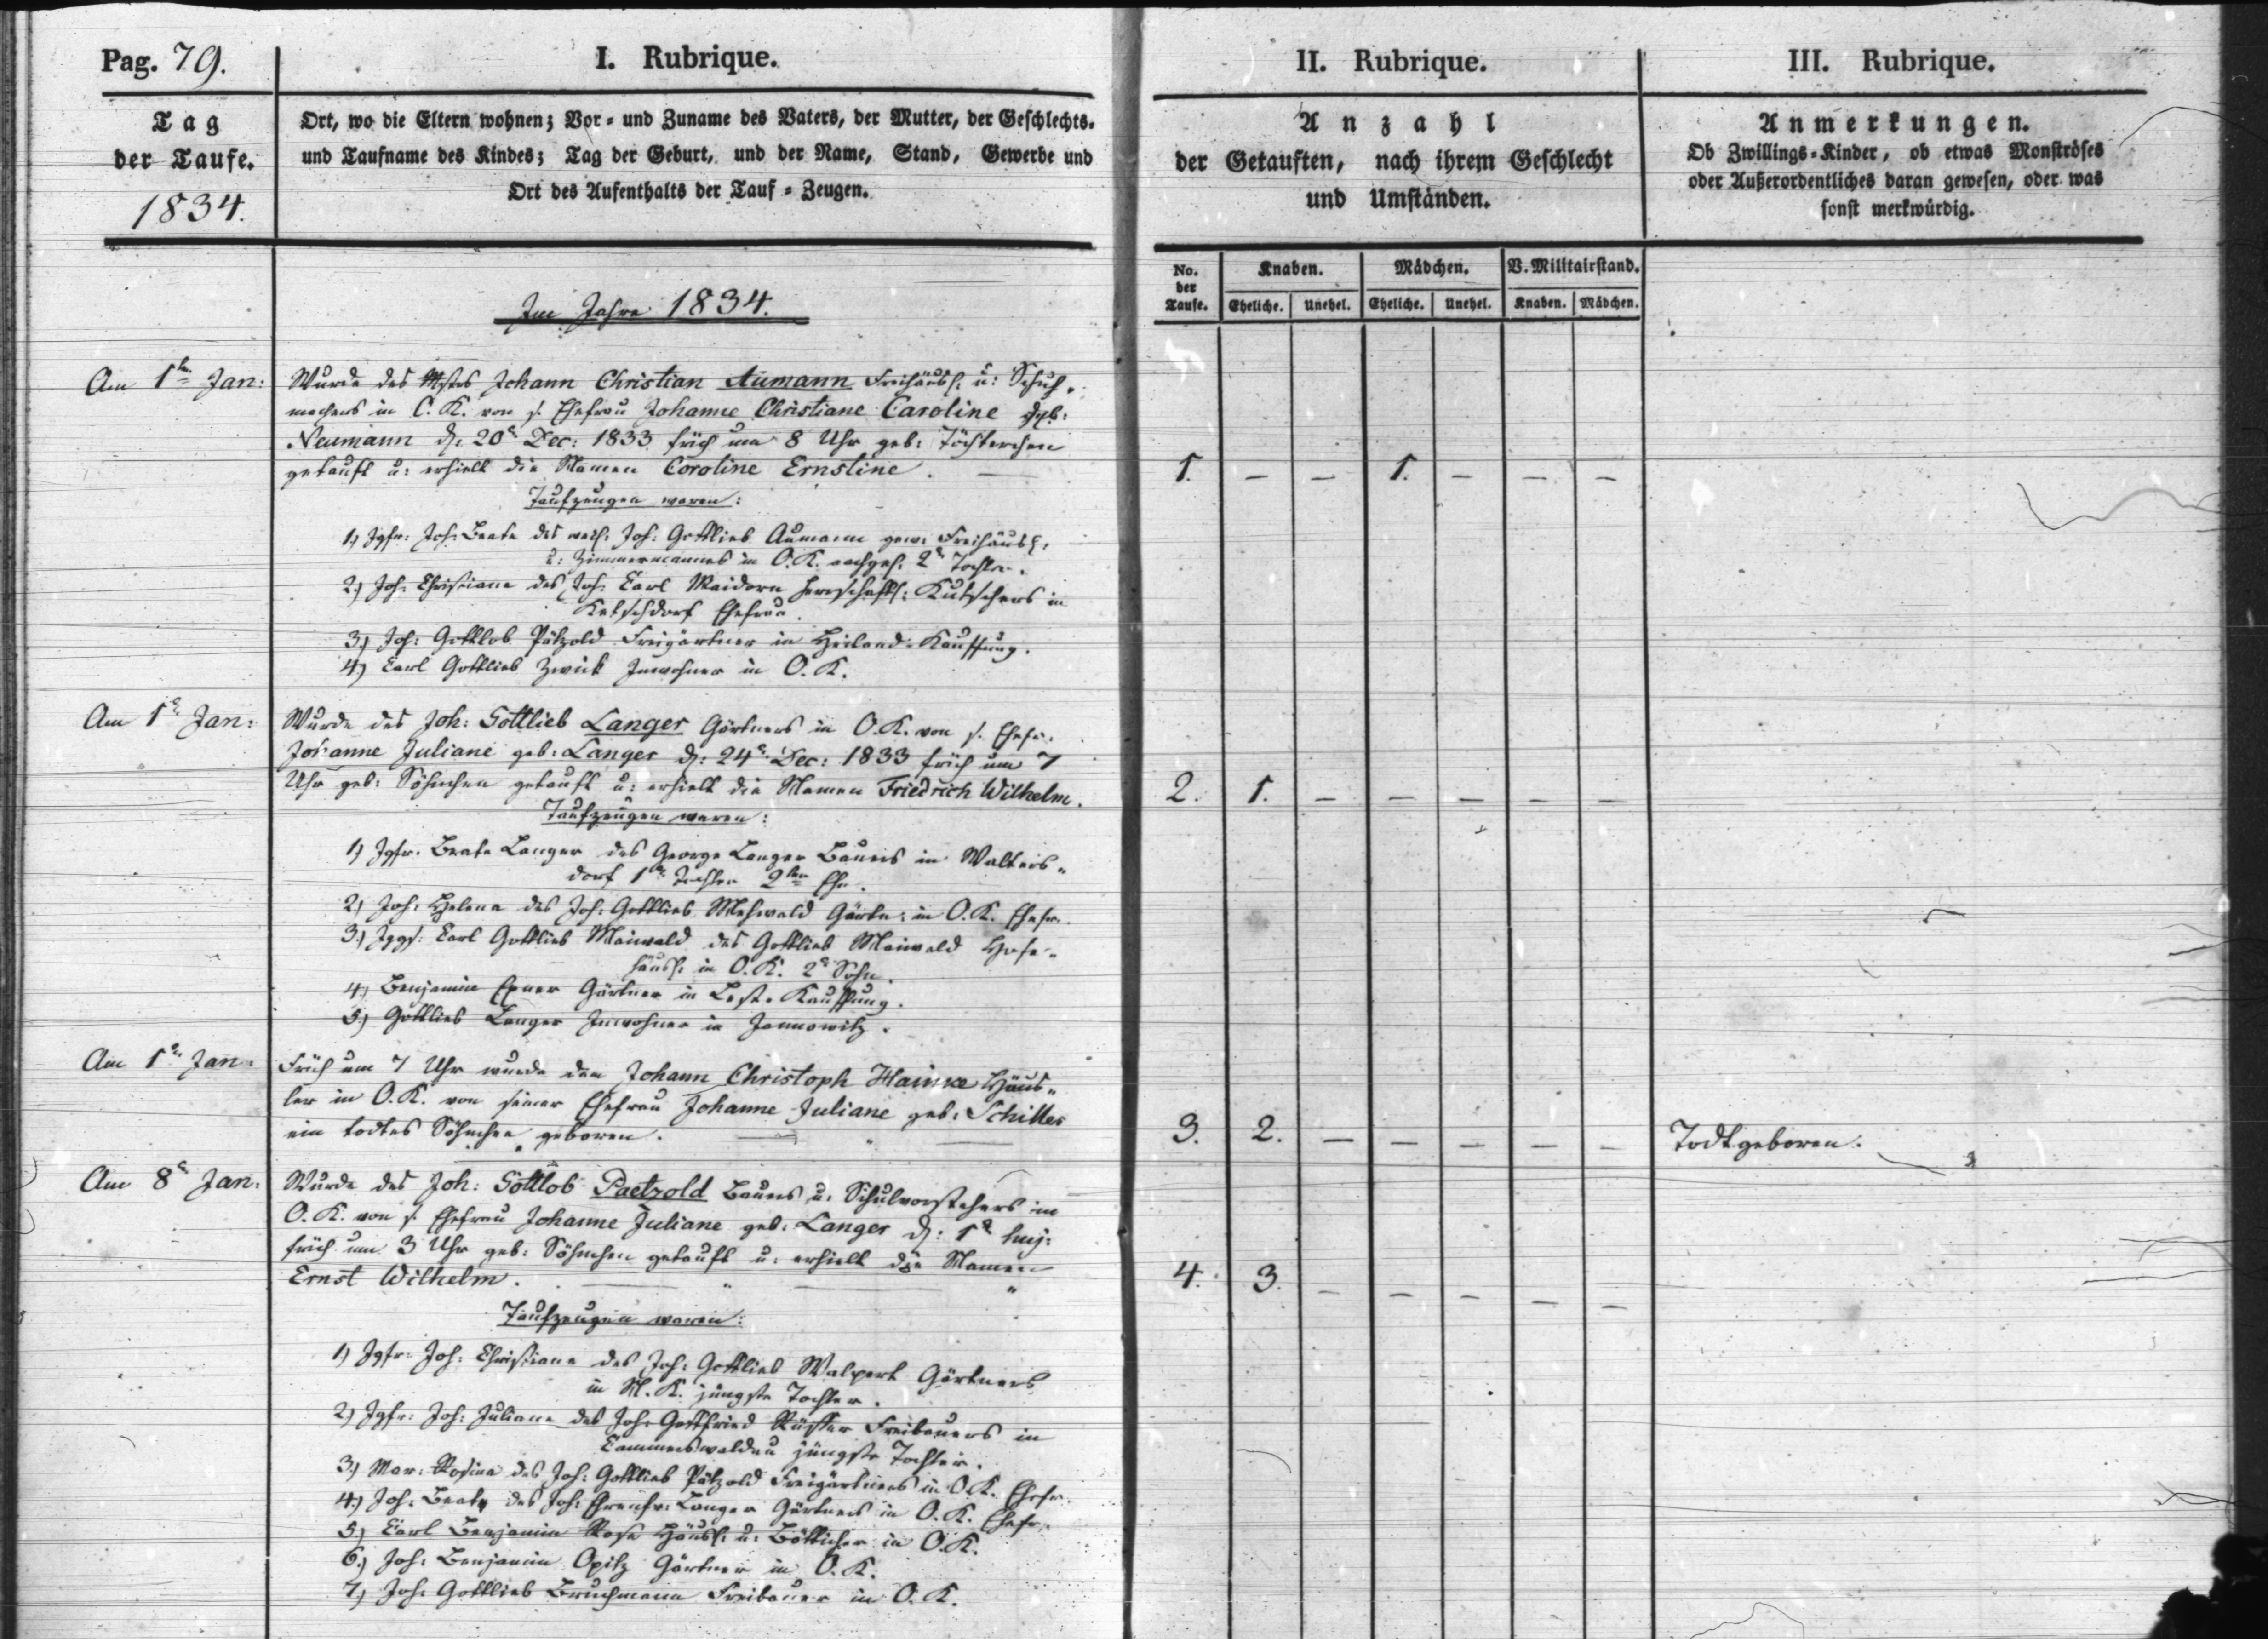 Pag. 79.
I. Rubrique.
Tag
der Taufe.
1834.
Ort, wo die Eltern wohnen; Vor- und Zuname des Vaters, der Mutter, der Geschlechts-
und Taufname des Kindes; Tag der Geburt, und der Name, Stand, Gewerbe und
Ort des Aufenthalts der Tauf-Zeugen.
Im Jahre 1834.
Am 1ten Jan:
Wurde des Mstrs Johann Christian Aumann Freihäusl: u: Schuh-
machers in O. K. von s. Ehefrau Johanne Christiane Caroline geb:
Neumann d: 20t Dec: 1833 früh um 8 Uhr geb: Töchterchen
getauft u: erhielt die Namen Caroline Ernstine.
Taufzeugen waren:
1.) Jgfr: Joh: Beate des weil: Joh: Gottlieb Aumann gew: Freihäusl:
u: Zimmermannes in O. K. nachgel: 2t Tochter.
2.) Joh: Christiane des Joh: Carl Maidorn herrschaftl: Kutschers in
Ketschdorf Ehefrau.
3.) Joh: Gottlob Pätzold Freigärtner in Heiland-Kauffung.
4.) Carl Gottlieb Zwick Inwohner in O. K.
Am 1t Jan:
Wurde des Joh: Gottlieb Langer Gärtners in O. K. von s. Ehefr:
Johanne Juliane geb: Langer d: 24t Dec: 1833 früh um 7
Uhr geb: Söhnchen getauft u: erhielt die Namen Friedrich Wilhelm.
Taufzeugen waren:
1.) Jgfr: Beate Langer des George Langer Bauers in Walters-
dorf 1te Tochter 2ter Ehe.
2.) Joh: Helena des Joh: Gottlieb Mehwald Gärtn: in O. K. Ehefr.
3.) Jggs: Carl Gottlieb Maiwald des Gottlieb Maiwald Hofe-
häusl: in O. K. 2t Sohn.
4.) Benjamin Exner Gärtner in Lest-Kauffung.
5.) Gottlieb Langer Inwohner in Jannowitz.
Am 1t Jan:
Früh um 7 Uhr wurde dem Johann Christoph Hainke Häus-
ler in O. K. von seiner Ehefrau Johanne Juliane geb: Schiller
ein todtes Söhnchen geboren.
Am 8t Jan:
Wurde des Joh: Gottlob Paetzold Bauers u: Schulvorstehers in
O. K. von s. Ehefrau Johanne Juliane geb: Langer d: 1t huj:
früh um 3 Uhr geb: Söhnchen getauft u: erhielt die Namen
Ernst Wilhelm.
Taufzeugen waren:
1.) Jgfr: Joh: Christiane des Joh: Gottlieb Walpert Gärtners
in M. K. jüngste Tochter.
2.) Jgfr: Joh: Juliane des Joh: Gottfried Freibauers in
Cammerswaldau jüngste Tochter.
3.) Mar: Rosina des Joh: Gottlieb Pätzold Freigärtners in O. K. Ehefr.
4.) Joh: Beate des Joh: Ehrenfr: Langer Gärtners in O. K. Ehefr.
5.) Carl Benjamin Rose Häusl: u: Bötticher in O. K.
6.) Joh: Benjamin Opitz Gärtner in O. K.
7.) Joh: Gottlieb Bruchmann Freibauer in O. K.
II. Rubrique.
Anzahl
der Getauften, nach ihrem Geschlecht
und Umständen.
No. der Taufe.
Knaben. Mädchen. V. Militairstand.
Eheliche. Unehel. Eheliche. Unehel. Knaben. Mädchen.
1. – – 1. – – –
2. 1. – – – – –
3. 2. – – – – –
4. 3. – – – – –
III. Rubrique.
Anmerkungen.
Ob Zwillings-Kinder, ob etwas Monströses
oder Außerordentliches daran gewesen, oder was
sonst merkwürdig.
Todtgeboren.